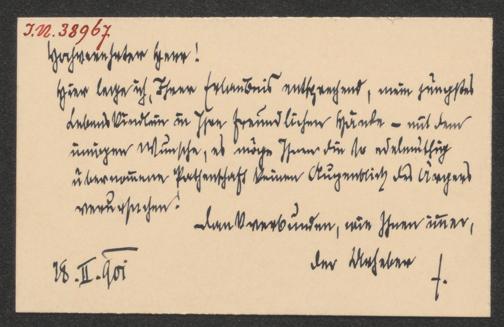 I.N. 38967
Hochverehrter Herr!
Hier lege ich, Ihrer Erlaubnis entsprechend, mein jüngstes
Lebenskindlein in Ihre freundlichen Hände – mit dem
innigen Wunsche, es möge Ihnen die so edelmütig
übernommene Pathenschaft keinen Augenblick des Ärgers
verursachen!
Dankverbunden, wie Ihnen immer,
der Urheber
18. II. 901